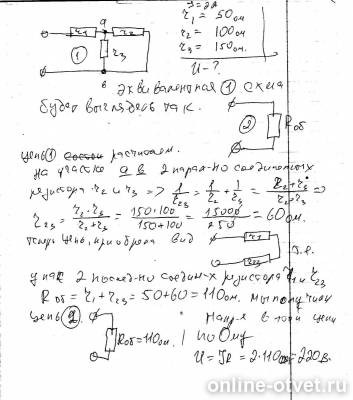 a
I = 2А
r1 r2
r1 = 50 ом
① r3
r2 = 100 ом
r3 = 150 ом.
в
U - ?
эквивалентная ① схема
будет выглядеть так.
② Rоб
цепь ① рассчитаем.
на участке а в 2 парал-но соединенных
резистора r2 и r3 => 1/r23 = 1/r2 + 1/r3 = (r2+r3)/(r2·r3) =>
r23 = (r2·r3)/(r2+r3) = (150·100)/(150+100) = 15000/250 = 60 ом.
теперь цепь приобрела вид
r1
r23
т.е.
у нас 2 послед-но соедин-х резистора r1 и r23
Rоб = r1 + r23 = 50+60 = 110 ом. мы получили
цепь ②
Напр-е в этой цепи
Rоб=110ом.
по Ому
U = IR = 2·110 = 220в.
online-otvet.ru